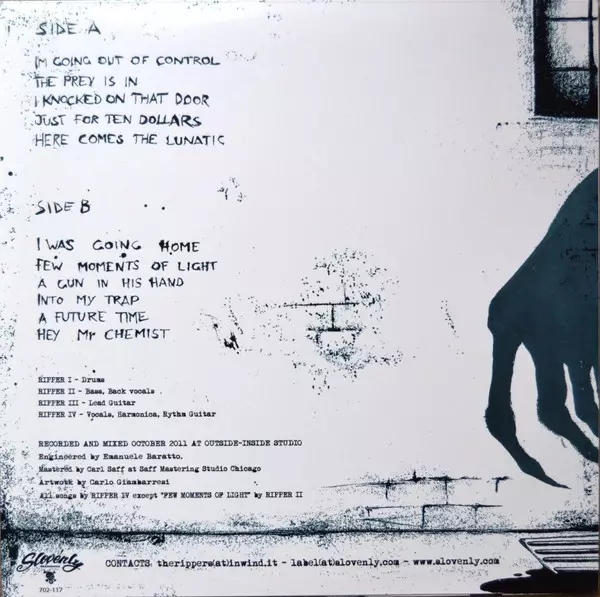 SIDE A
I'M GOING OUT OF CONTROL
THE PREY IS IN
I KNOCKED ON THAT DOOR
JUST FOR TEN DOLLARS
HERE COMES THE LUNATIC
SIDE B
I WAS GOING HOME
FEW MOMENTS OF LIGHT
A GUN IN HIS HAND
INTO MY TRAP
A FUTURE TIME
HEY Mr CHEMIST
RIPPER I - Drums
RIPPER II - Bass, Back vocals
RIPPER III - Lead Guitar
RIPPER IV - Vocals, Harmonica, Rythm Guitar
RECORDED AND MIXED OCTOBER 2011 AT OUTSIDE-INSIDE STUDIO
Engineered by Emanuele Baratto
Mastered by Carl Saff at Saff Mastering Studio Chicago
Artwork by Carlo Giambarresi
All songs by RIPPER IV except "FEW MOMENTS OF LIGHT" by RIPPER II
Slovenly
702-117
CONTACTS therippers(at)inwind.it - label(at)slovenly.com - www.slovenly.com